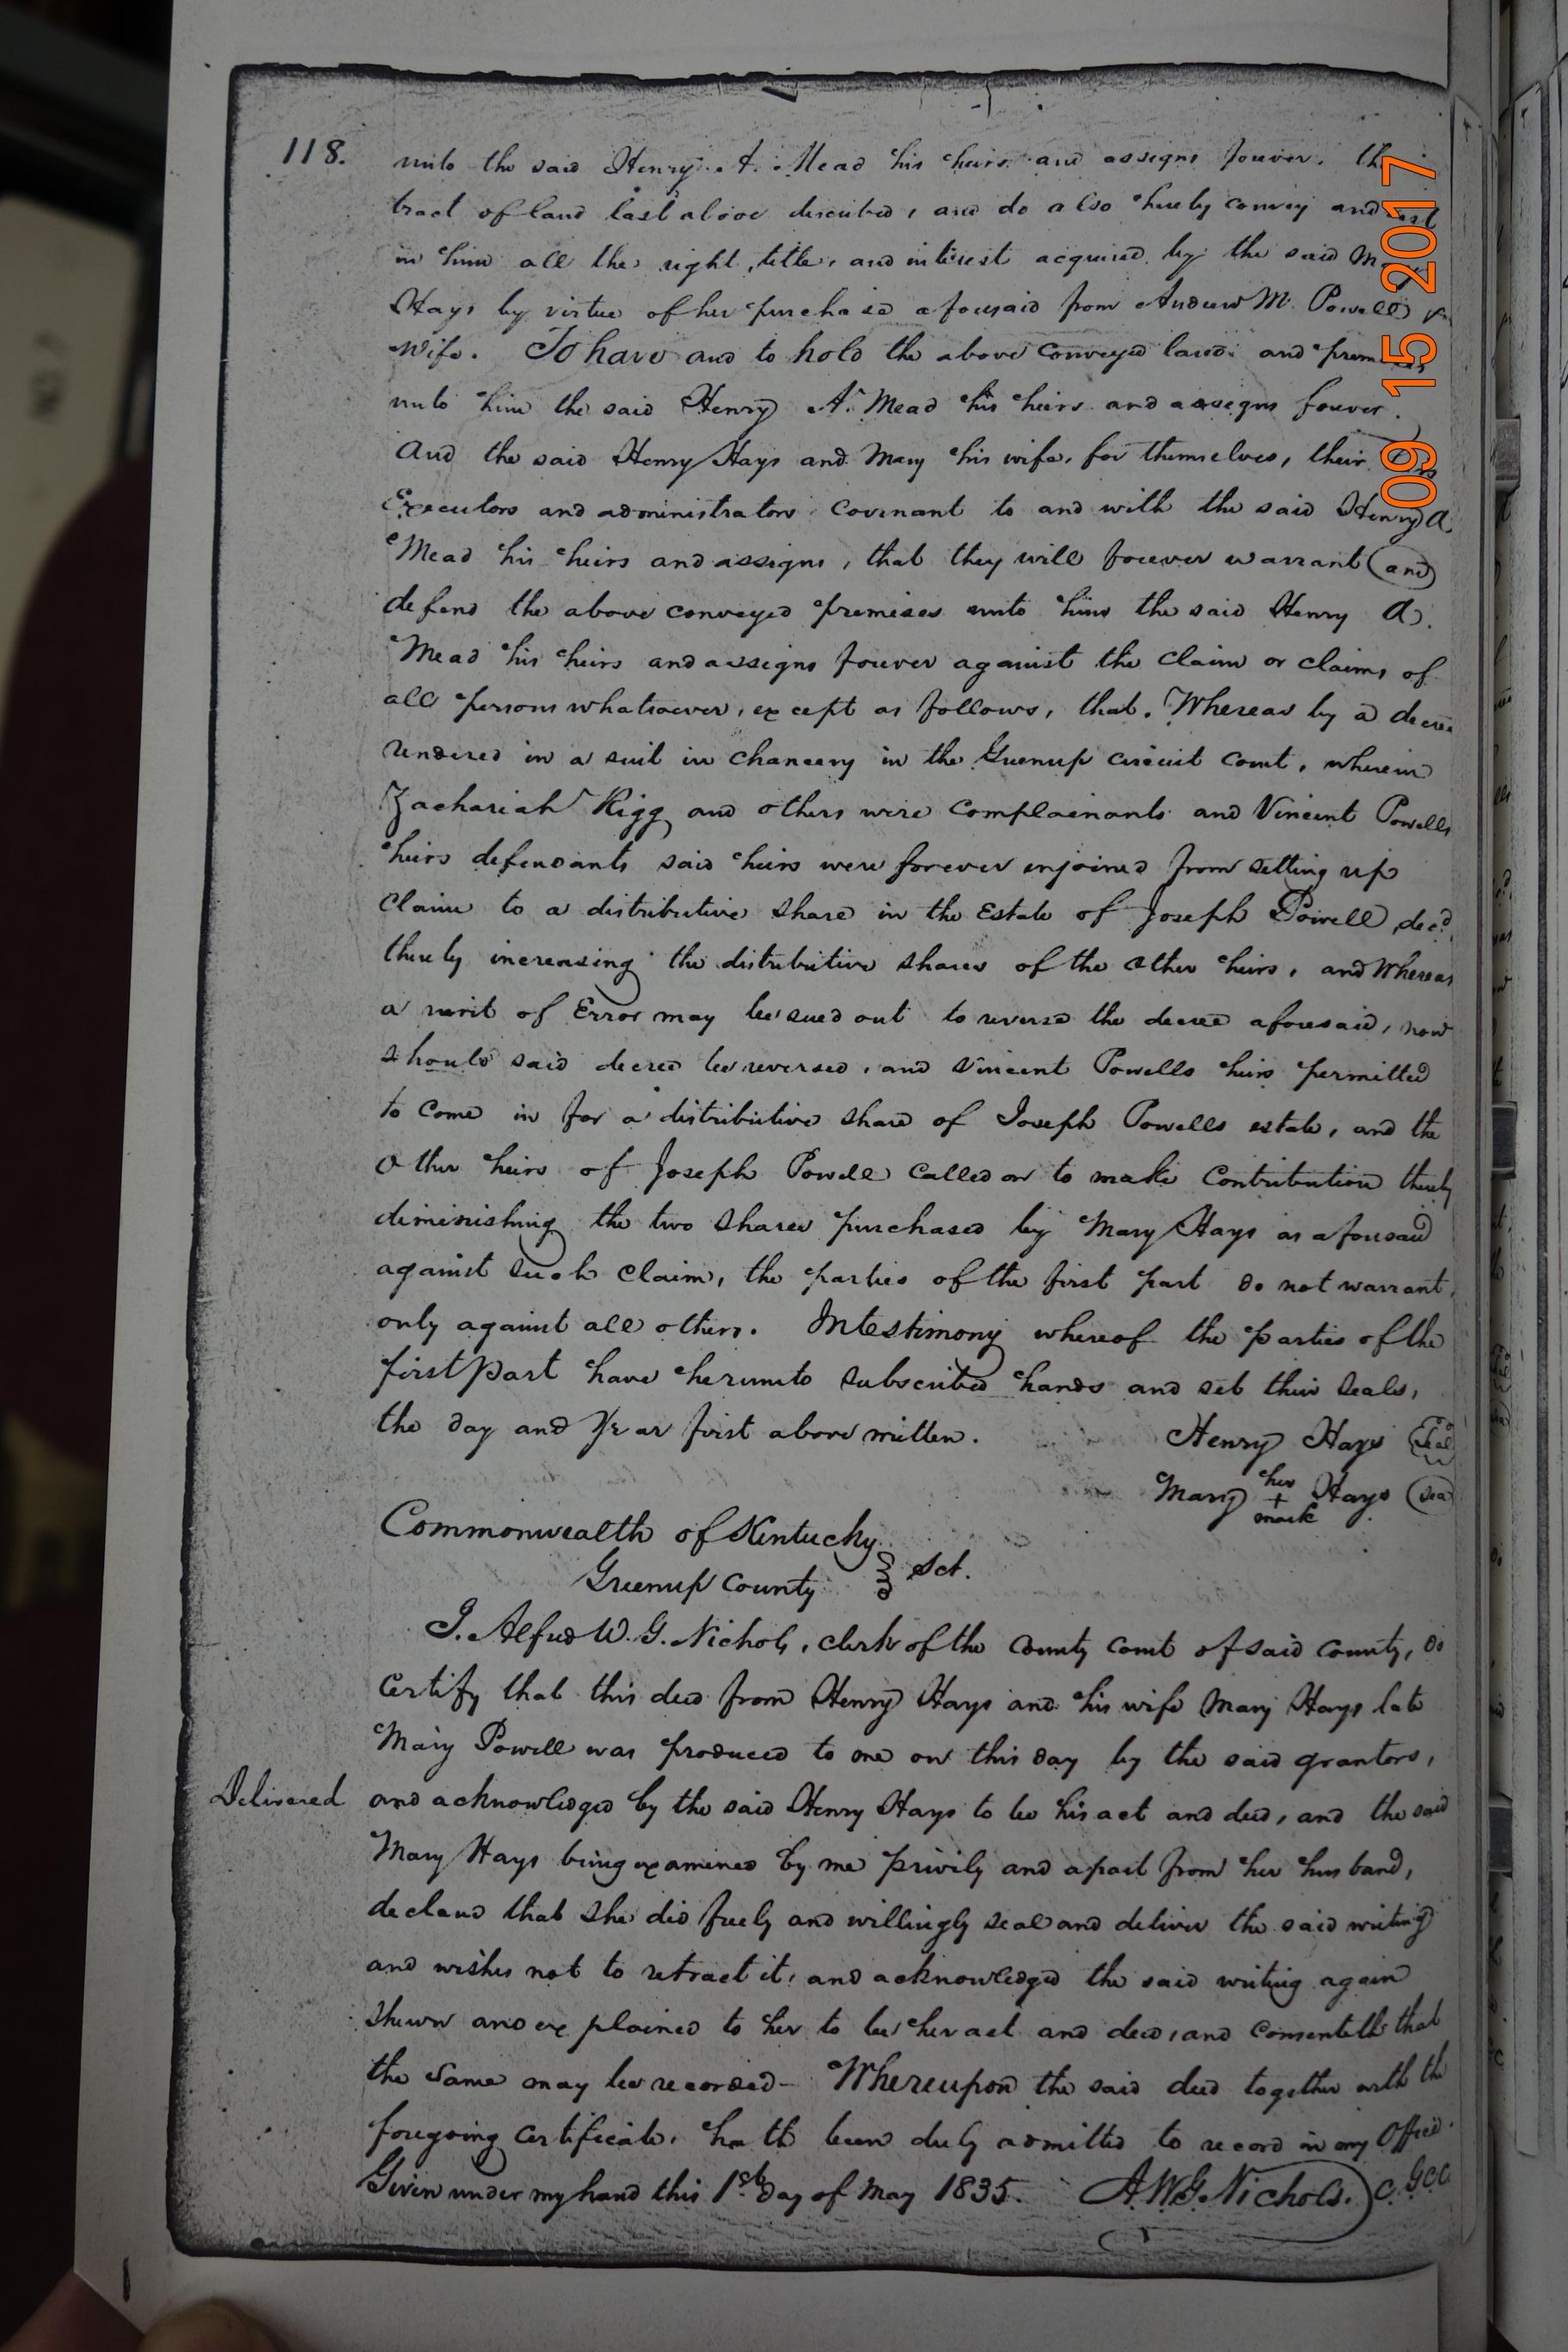 118.
unto the said Henry A. Mead his heirs and assigns forever, the
tract of land last above described, and do also hereby convey and vest
in him all the right, title, and interest acquired by the said
Hays by virtue of her purchase aforesaid from Andrew M. Powell &
Wife. To have and to hold the above conveyed land and premises
unto him the said Henry A. Mead his heirs and assigns forever.
And the said Henry Hays and Mary his wife, for themselves, their
Executors and administrators covenant to and with the said Henry A.
Mead his heirs and assigns, that they will forever warrant and
defend the above conveyed premises unto him the said Henry A.
Mead his heirs and assigns forever against the claim or claims of
all persons whatsoever, except as follows, that. Whereas by a decree
rendered in a suit in chancery in the Greenup circuit court, wherein
Zachariah Rigg and others were complainants and Vincent Powells
heirs defendants said heirs were forever enjoined from setting up
claim to a distributive share in the Estate of Joseph Powell, decd.
thereby increasing the distributive shares of the other heirs, and Whereas
a writ of Error may be sued out to reverse the decree aforesaid, now
should said decree be reversed, and Vincent Powells heirs permitted
to come in for a distributive share of Joseph Powells estate, and the
other heirs of Joseph Powell called on to make contribution thereby
diminishing the two shares purchased by Mary Hays as aforesaid
against such claim, the parties of the first part do not warrant,
only against all others. In testimony whereof the parties of the
first part have hereunto subscribed hands and set their seals,
the day and year first above written. Henry Hays Seal
Mary her + mark Hays Seal
Commonwealth of Kentucky
Greenup County Sct.
I. Alfred W. G. Nichols, clerk of the county court of said county, do
certify that this deed from Henry Hays and his wife Mary Hays late
Mary Powell was produced to me on this day by the said grantors,
Delivered and acknowledged by the said Henry Hays to be his act and deed, and the said
Mary Hays being examined by me privily and apart from her husband,
declared that she did freely and willingly seal and deliver the said writing
and wishes not to retract it, and acknowledged the said writing again
shewn and explained to her to be her act and deed, and consenteth that
the same may be recorded- Whereupon the said deed together with the
foregoing certificate, hath been duly admitted to record in my Office
Given under my hand this 1st. day of May 1835. A.W.G. Nichols. C.G.C.C.
09 15 2017